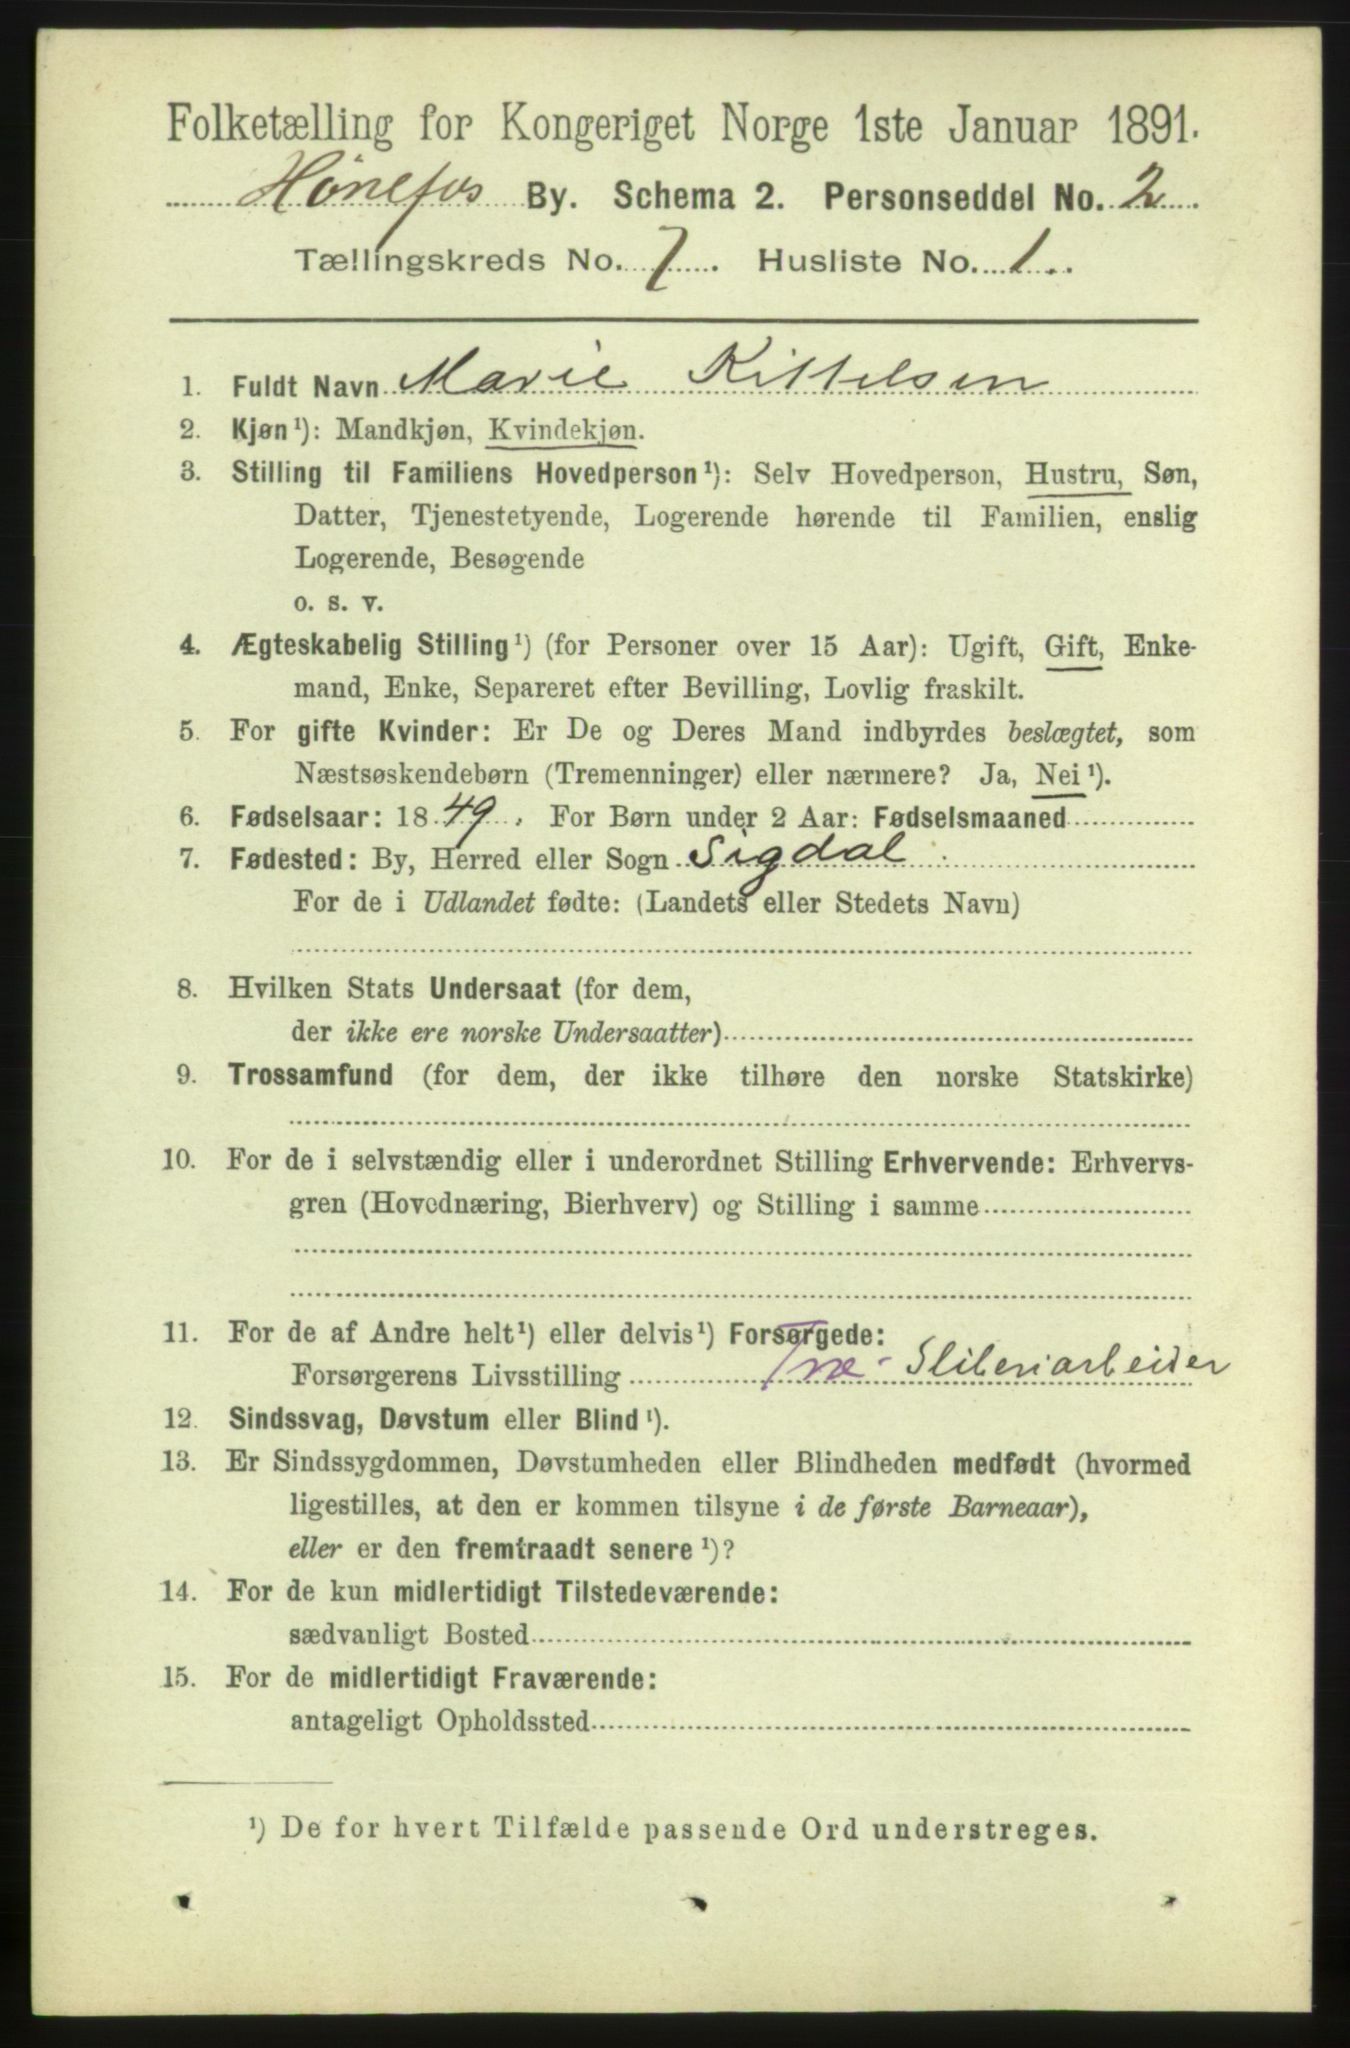 Folketælling for Kongeriget Norge 1ste Januar 1891.
Hønefos By. Schema 2. Personseddel No. 2
Tællingskreds No. 7. Husliste No. 1.
1. Fuldt Navn Marie Kittelsen
2. Kjøn¹): Mandkjøn, Kvindekjøn.
3. Stilling til Familiens Hovedperson¹): Selv Hovedperson, Hustru, Søn,
Datter, Tjenestetyende, Logerende hørende til Familien, enslig
Logerende, Besøgende
o. s. v.
4. Ægteskabelig Stilling¹) (for Personer over 15 Aar): Ugift, Gift, Enke-
mand, Enke, Separeret efter Bevilling, Lovlig fraskilt.
5. For gifte Kvinder: Er De og Deres Mand indbyrdes beslægtet, som
Næstsøskendebørn (Tremenninger) eller nærmere? Ja, Nei¹).
6. Fødselsaar: 1849. For Børn under 2 Aar: Fødselsmaaned
7. Fødested: By, Herred eller Sogn Sigdal
For de i Udlandet fødte: (Landets eller Stedets Navn)
8. Hvilken Stats Undersaat (for dem,
der ikke ere norske Undersaatter)
9. Trossamfund (for dem, der ikke tilhøre den norske Statskirke)
10. For de i selvstændig eller i underordnet Stilling Erhvervende: Erhvervs-
gren (Hovednæring, Bierhverv) og Stilling i samme
11. For de af Andre helt¹) eller delvis¹) Forsørgede:
Forsørgerens Livsstilling Træ- Sliberiarbeider
12. Sindssvag, Døvstum eller Blind¹).
13. Er Sindssygdommen, Døvstumheden eller Blindheden medfødt (hvormed
ligestilles, at den er kommen tilsyne i de første Barneaar),
eller er den fremtraadt senere¹)?
14. For de kun midlertidigt Tilstedeværende:
sædvanligt Bosted
15. For de midlertidigt Fraværende:
antageligt Opholdssted
¹) De for hvert Tilfælde passende Ord understreges.